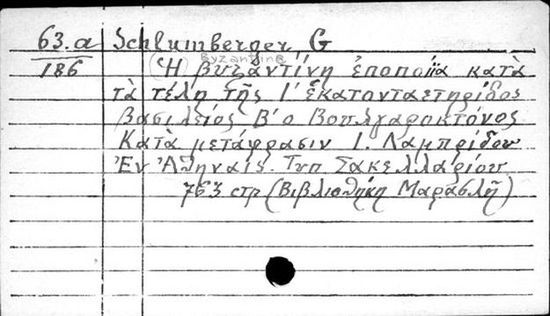 63.a Schlumberger G
186 byzantine
Ἡ βυζαντίνη ἐποποιΐα κατὰ
τὰ τέλη τῆς Ι' ἑκατονταετηρίδος
Βασιλείος Β' ο Βουλγαροκτόνος
Κατὰ μετάφρασιν Ι. Λαμπρίδου
Ἐν Ἀθηναις. Τυπ Σακελλαρίου
763 στρ (Βιβλιοθήκη Μαρασλῆ)